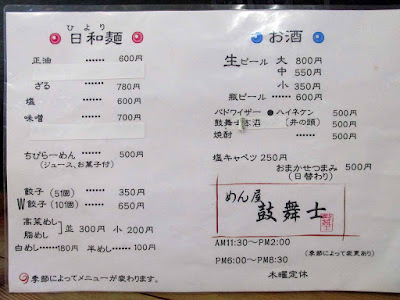 ひより
日和麺
正油 …… 600円
ざる …… 780円
塩 …… 600円
味噌 …… 700円
ちびらーめん …… 500円
(ジュース、お菓子付)
餃子(5個) …… 350円
W餃子(10個) …… 650円
高菜めし
脂めし
並300円 小200円
白めし……180円 半めし……100円
季節によってメニューが変わります。
お酒
生ビール 大 800円
中 550円
小 350円
瓶ビール …… 600円
バドワイザー ● ハイネケン 500円
鼓舞士 (井の頭) 500円
焼酎 …… 500円
塩キャベツ 250円
おまかせつまみ 500円
(日替わり)
めん屋
鼓舞士
AM11:30〜PM2:00
(季節によって変更あり)
PM6:00〜PM8:30
木曜定休